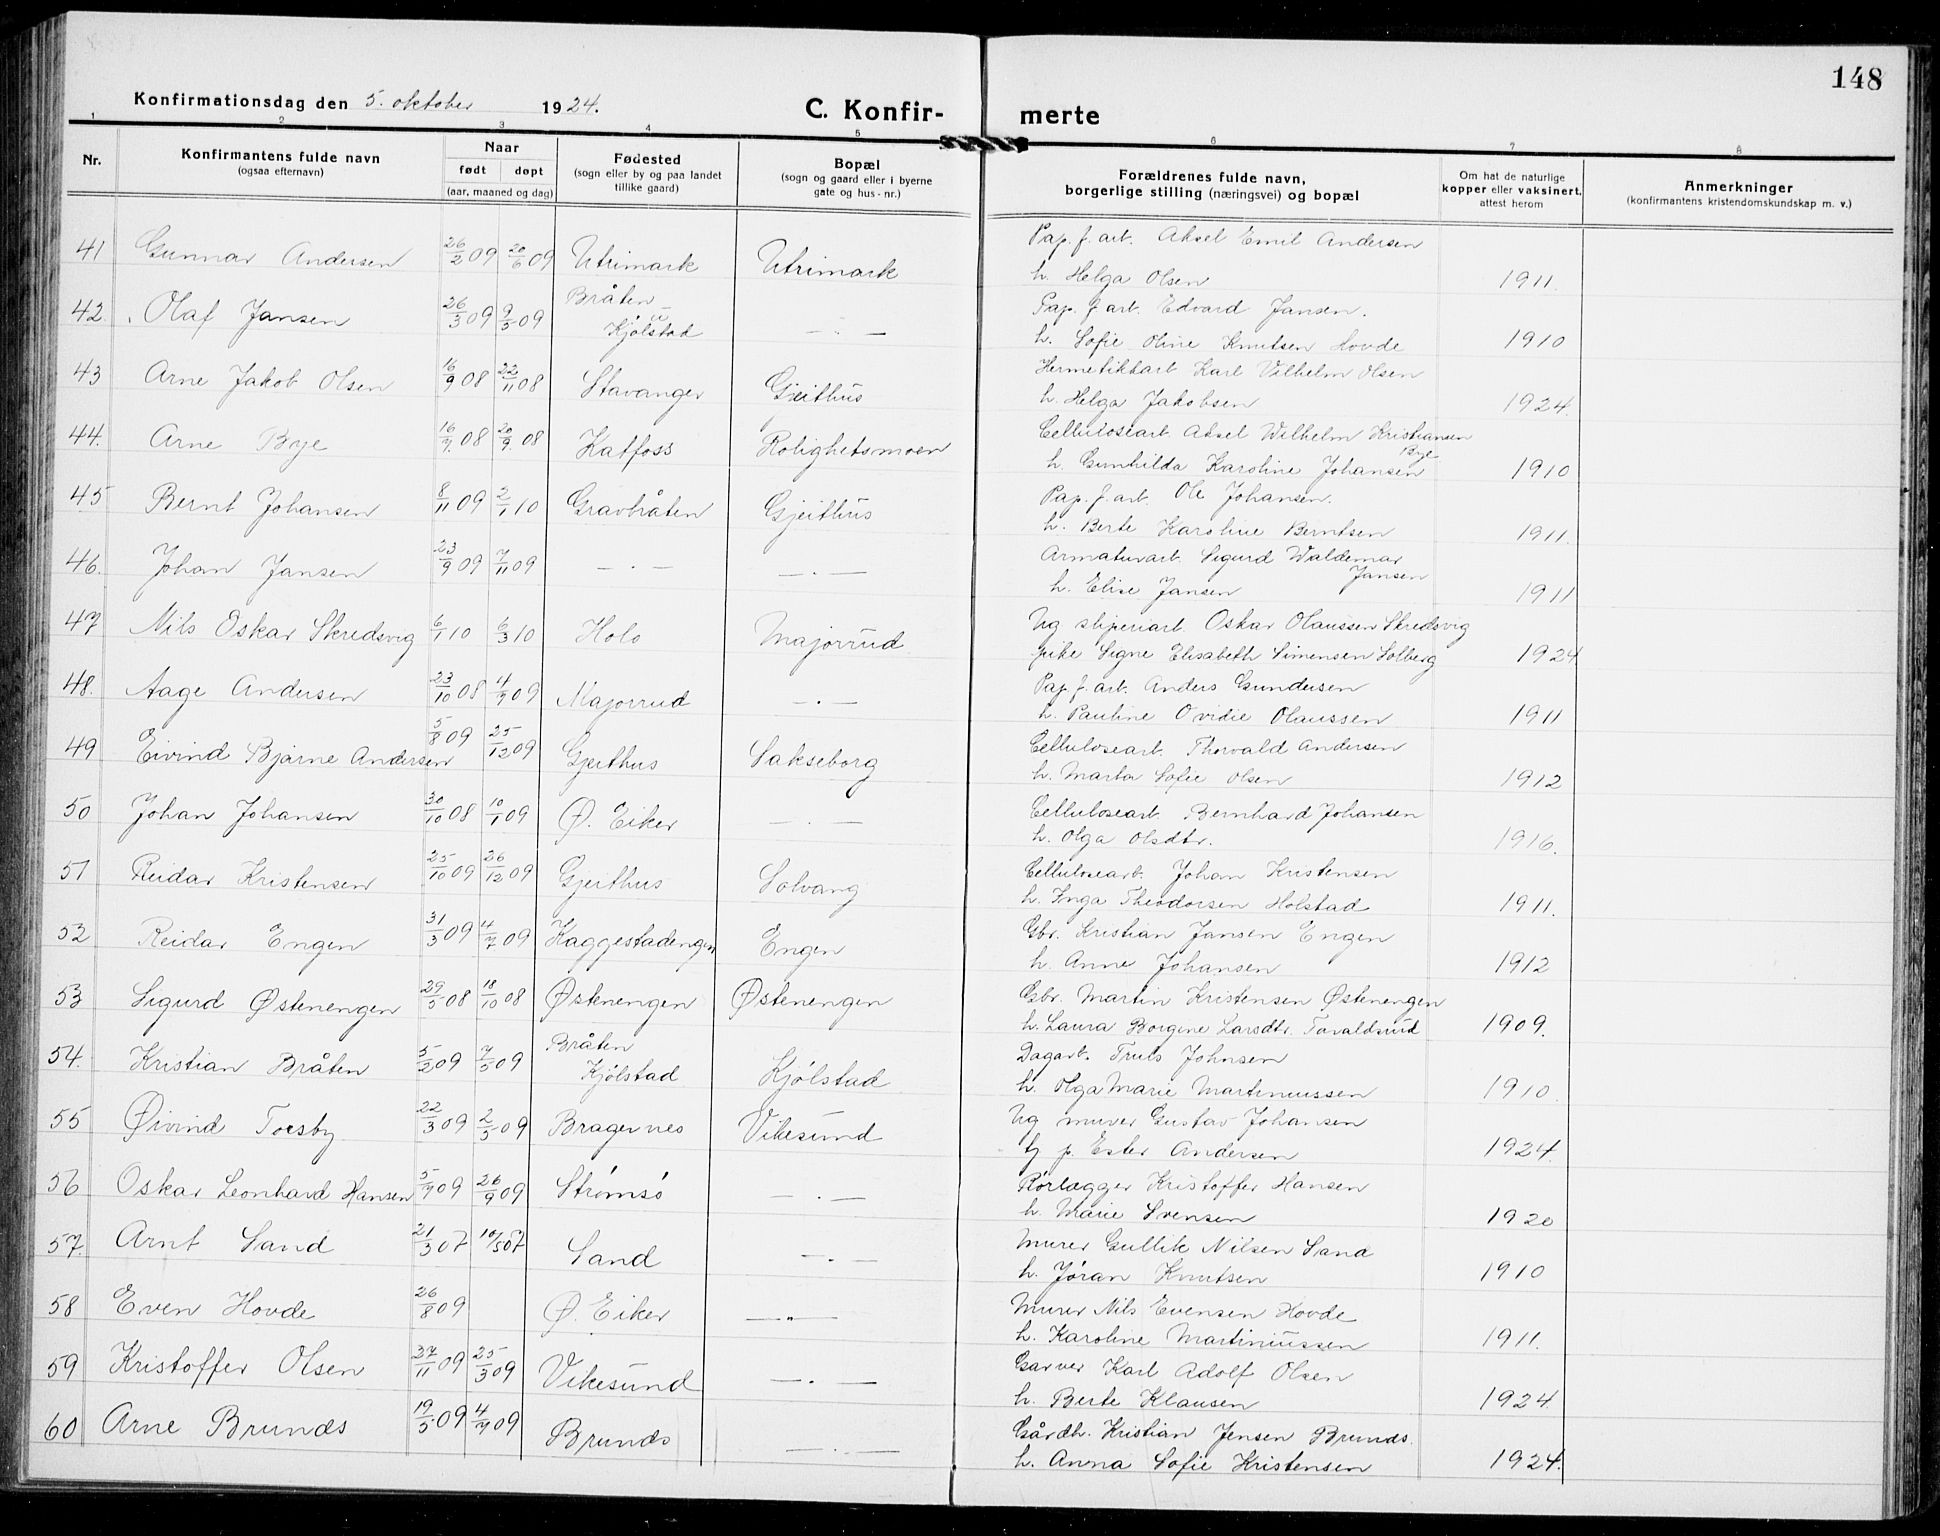 148
Konfirmationsdag den 5. oktober 1924.
C. Konfir-
merte
1 2 3 4 5 6 7 8
Nr.
Konfirmantens fulde navn
(ogsaa efternavn)
Naar
født døpt
(aar, maaned og dag)
Fødested
(sogn eller by og paa landet
tillike gaard)
Bopæl
(sogn og gaard eller i byerne
gate og hus-nr.)
Forældrenes fulde navn,
borgerlige stilling (næringsvei) og bopæl
Om hat de naturlige
kopper eller vaksinert,
attest herom
Anmerkninger
(konfirmantens kristendomskundskap m. v.)
41 Gunnar Andersen 26/2 09 20/6 09 Utrimark Utrimark Pap. f. art. Aksel Emil Andersen
h. Helga Olsen 1911.
42. Olaf Jansen 26/3 09 9/5 09 Bråten u Kjölstad — " — Pap. f. art. Edvard Jansen.
h. Sofie Oline Knutsen Hovde 1910
43 Arne Jakob Olsen 16/9 08 22/11 08 Stavanger Gjeithus Hermetikkart Karl Vilhelm Olsen
h. Helga Jakobsen 1924.
44. Arne Bye 16/7. 08 20/9. 08 Katfoss Rolighetsmoen Celluloseart. Aksel Wilhelm Kristiansen Bye
h. Gunhilda Karoline Johansen 1910
45 Bernt Johansen 8/11 09 2/1 10 Gravbråten Gjeithus Pap. f. art. Ole Johansen.
h. Berte Karoline Berntsen 1911.
46. Johan Jansen 23/9 09 7/11 09 — " — — " — Armaturart. Sigurd Waldemar Jansen
h. Elise Jansen 1911
47 Nils Oskar Skredsvig 6/1 10 6/3 10 Holo Majorrud Ug sliperiart. Oskar Olaussen Skredsvig
pike Signe Elisabeth Simensen Solberg 1924
48. Aage Andersen 23/10 08 4/9 09 Majorrud — " — Pap. f. art. Anders Gundersen
h. Pauline Ovidie Olaussen 1911
49 Eivind Bjarne Andersen 5/8 09 25/12 09 Gjeithus Sakseborg Celluloseart. Thorvald Andersen
h. Marta Sofie Olsen 1912
50 Johan Johansen 30/10 08 10/1 09 Ø. Eiker — " — Celluloseart. Bernhard Johansen
h. Olga Olsdtr. 1916.
51 Reidar Kristensen 25/10 09 26/12 09 Gjeithus Solvang Celluloseart. Johan Kristensen
h. Inga Theodorsen Holstad 1911.
52 Reidar Engen 31/3 09 4/7 09 Haggestadengen Engen Gbr. Kristian Jansen Engen
h. Anne Johansen 1912
53 Sigurd Østenengen 29/5 08 18/10 08 Østenengen Østenengen Gbr. Martin Kristensen Østenengen
h. Laura Borgine Larsdtr. Tovaldsrud 1909.
54. Kristian Bråten 5/2 09 7/5 09 Bråten Kjölstad Kjölstad Dagart. Truls Johnsen
h. Olga Marie Martinussen 1910.
55 Øivind Toesby 22/3 09 2/5 09 Bragernes Vikesund Ug murer Gustav Johansen
Ug p. Ester Andersen 1924.
56 Oskar Leonhard Hansen 5/7 09 26/9 09 Strömsö — " — Rörlægger Kristoffer Hansen
h. Marie Svensen 1920
57. Arnt Sand 21/3 07 10/5 07 Sand — " — Murer Gullik Nilsen Sand
h. Jöran Knutsen 1910
58 Even Hovde 26/8 09 Ø. Eiker — " — Murer Nils Evensen Hovde
h. Karoline Martiniussen 1911.
59 Kristoffer Olsen 27/11 09 25/3 09 Vikesund — " — Garver Karl Adolf Olsen
h. Berte Klausen 1924
60 Arne Brunds 19/5 09 4/7 09 Brunds — " — Gårdb. Kristian Jensen Brunds.
h. Anna Sofie Kristensen 1924.